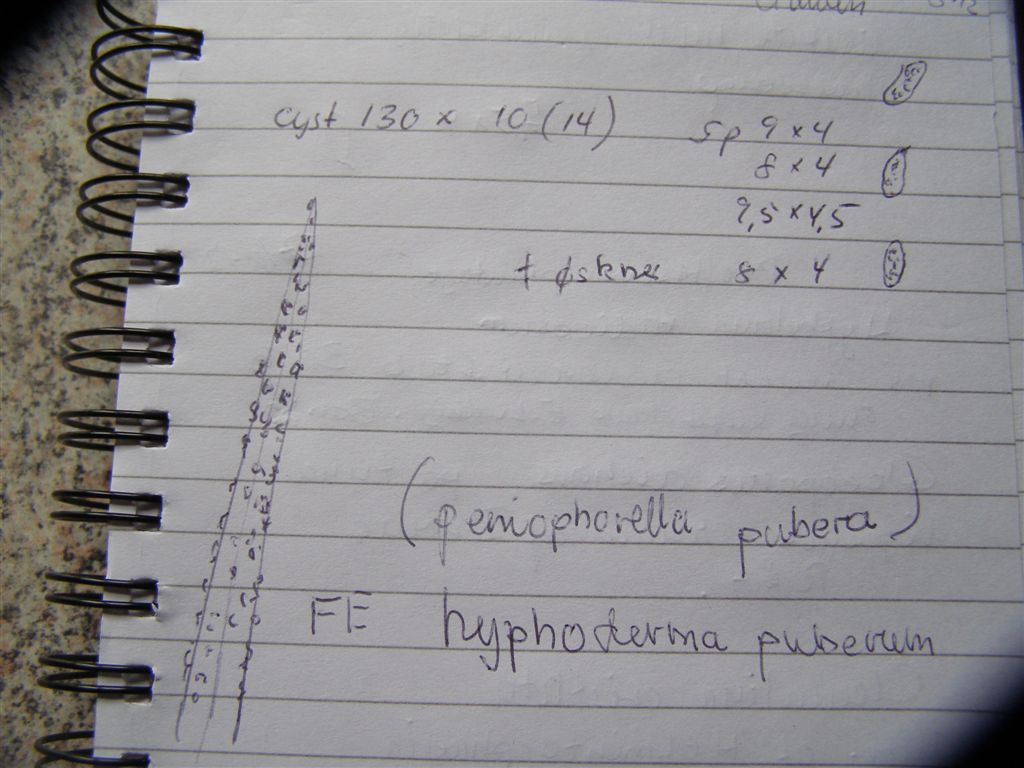 cyst 130 x 10 (14) Sp 9 x 4
8 x 4
9,5 x 4,5
+ øskner 8 x 4
(peniophorella pubera)
FE hyphoderma puberum